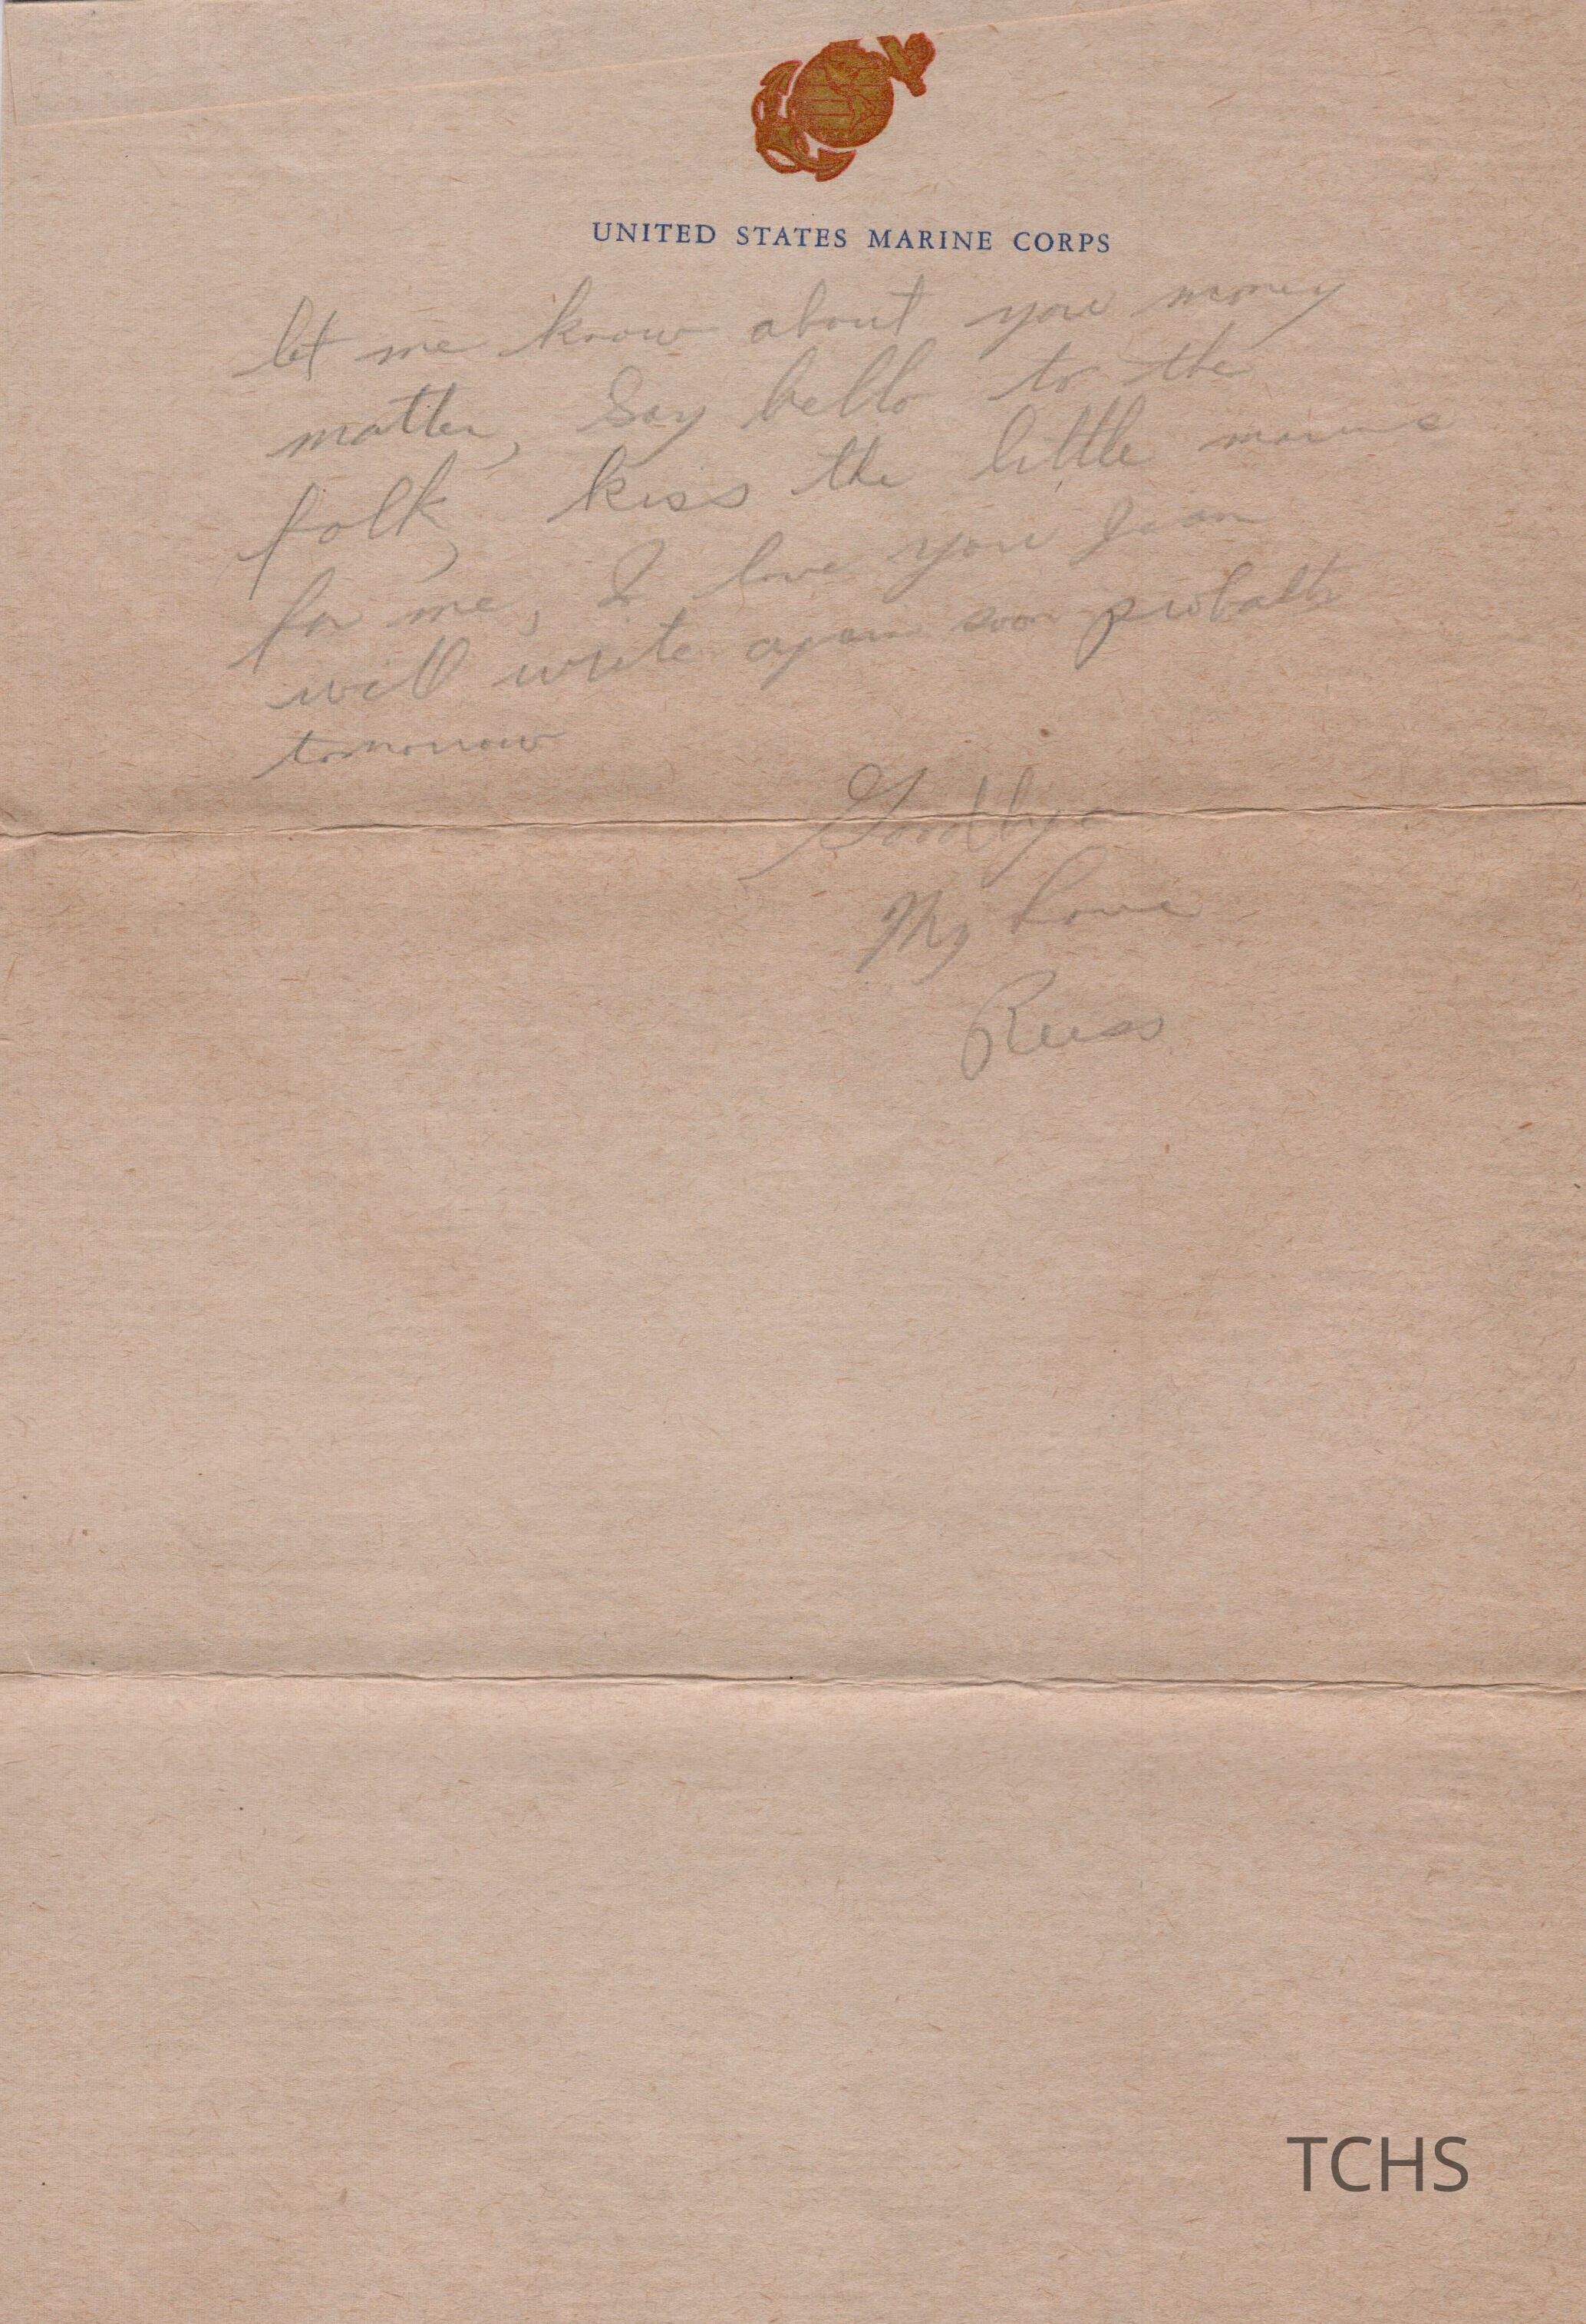 UNITED STATES MARINE CORPS
let me know about your money
matter, Say hello to the
folk, kiss the little
for me, I love you Jean
will write again soon
tomorrow
Goodbye
My Love
Russ
TCHS